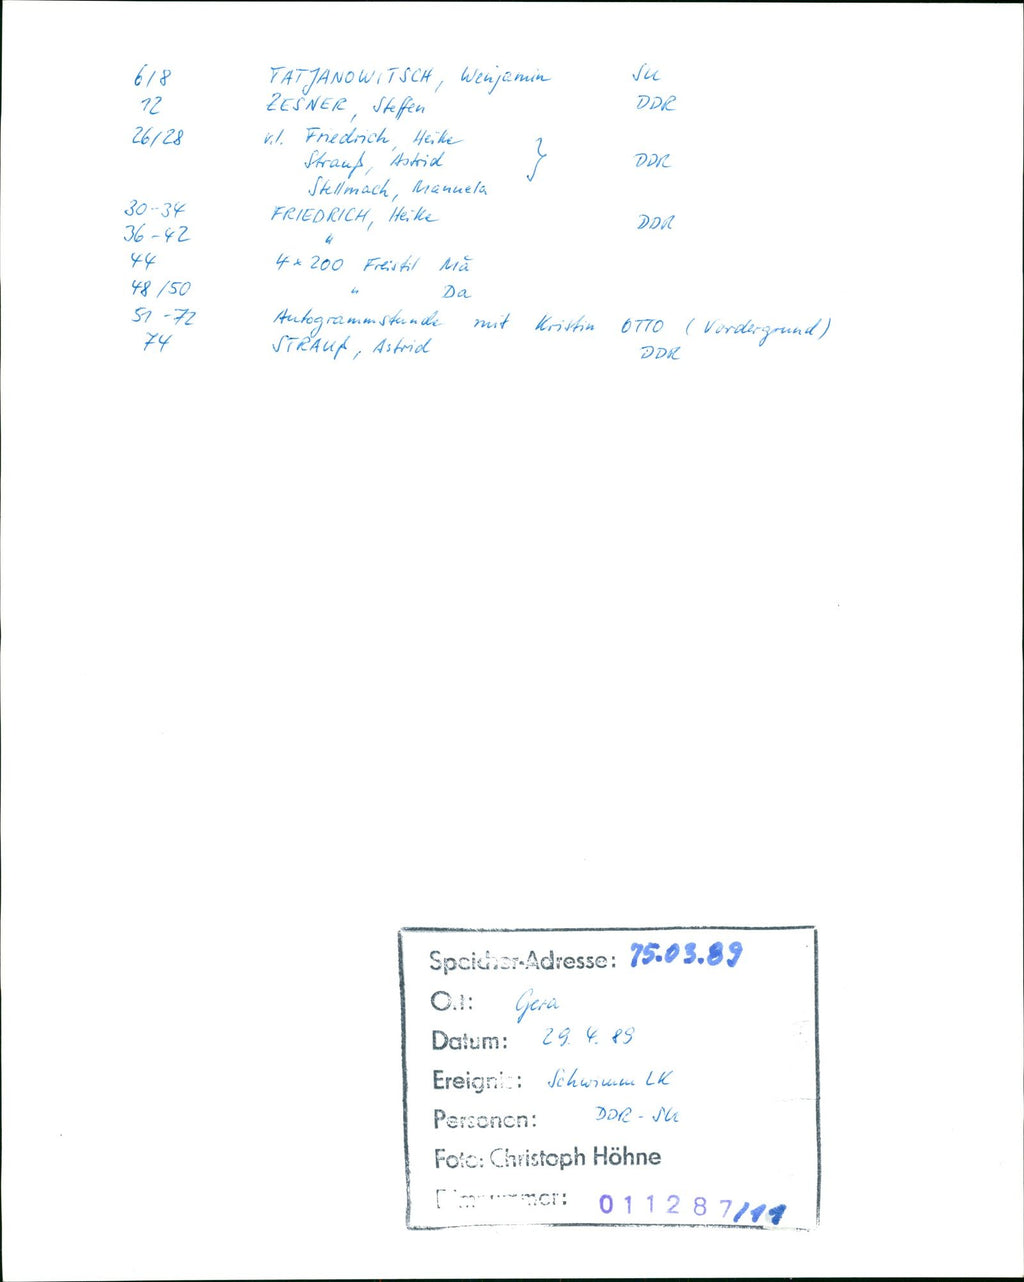 6/8 TATJANOWITSCH, Wenjamin SU
12 ZESNER, Steffen DDR
26/28 v.l. Friedrich, Heike
Strauß, Astrid } DDR
Stellmach, Manuela
30-34 FRIEDRICH, Heike DDR
36-42 "
44 4 x 200 Freistil Mä
48/50 " Da
51-72 Autogrammstunde mit Kristin OTTO (Vordergrund)
74 STRAUß, Astrid DDR
Speicher-Adresse: 75.03.89
Ort: Gera
Datum: 29. 4. 89
Ereignis: Schwimm LK
Personen: DDR - SU
Foto: Christoph Höhne
Filmnummer: 011287/11